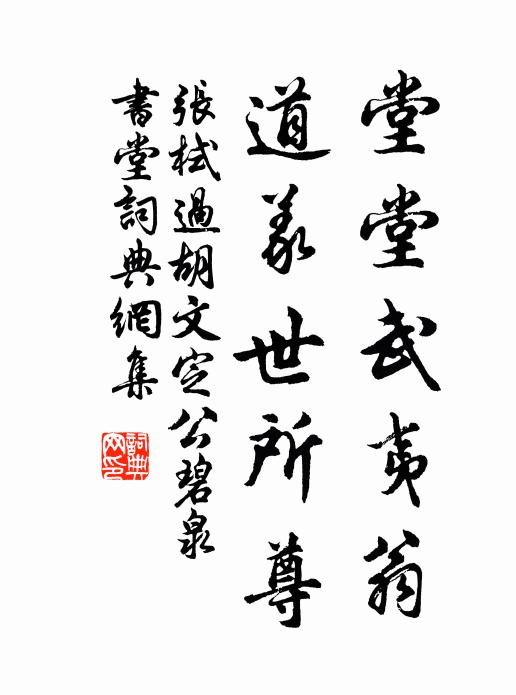 堂堂武夷翁
道義世所尊
張栻過胡文定公碧泉
書堂詞典網集
詞典網印